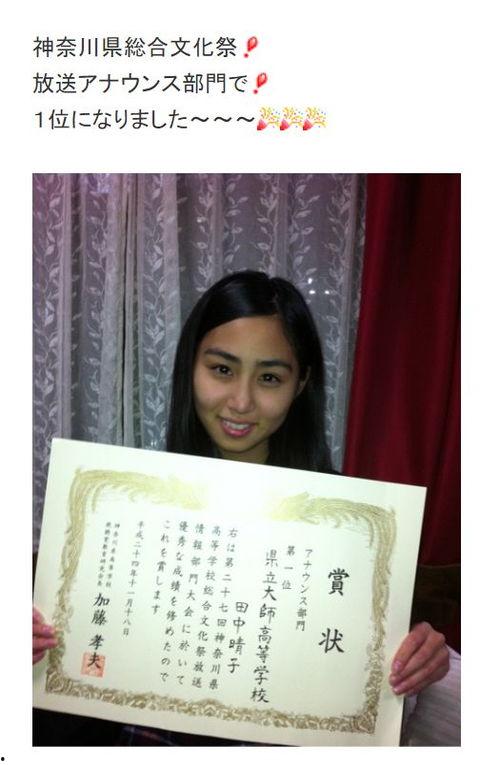 神奈川県総合文化祭❗
放送アナウンス部門で❗
１位になりました～～～🎉🎉🎉
賞状
アナウンス部門
第一位
県立大師高等学校
田中晴子
右は第二十七回神奈川県
高等学校総合文化祭放送
情報部門大会に於いて
優秀な成績を修めたので
これを賞します
平成二十四年十一月十八日
神奈川県高等学校
視聴覚教育研究会長
加藤孝夫